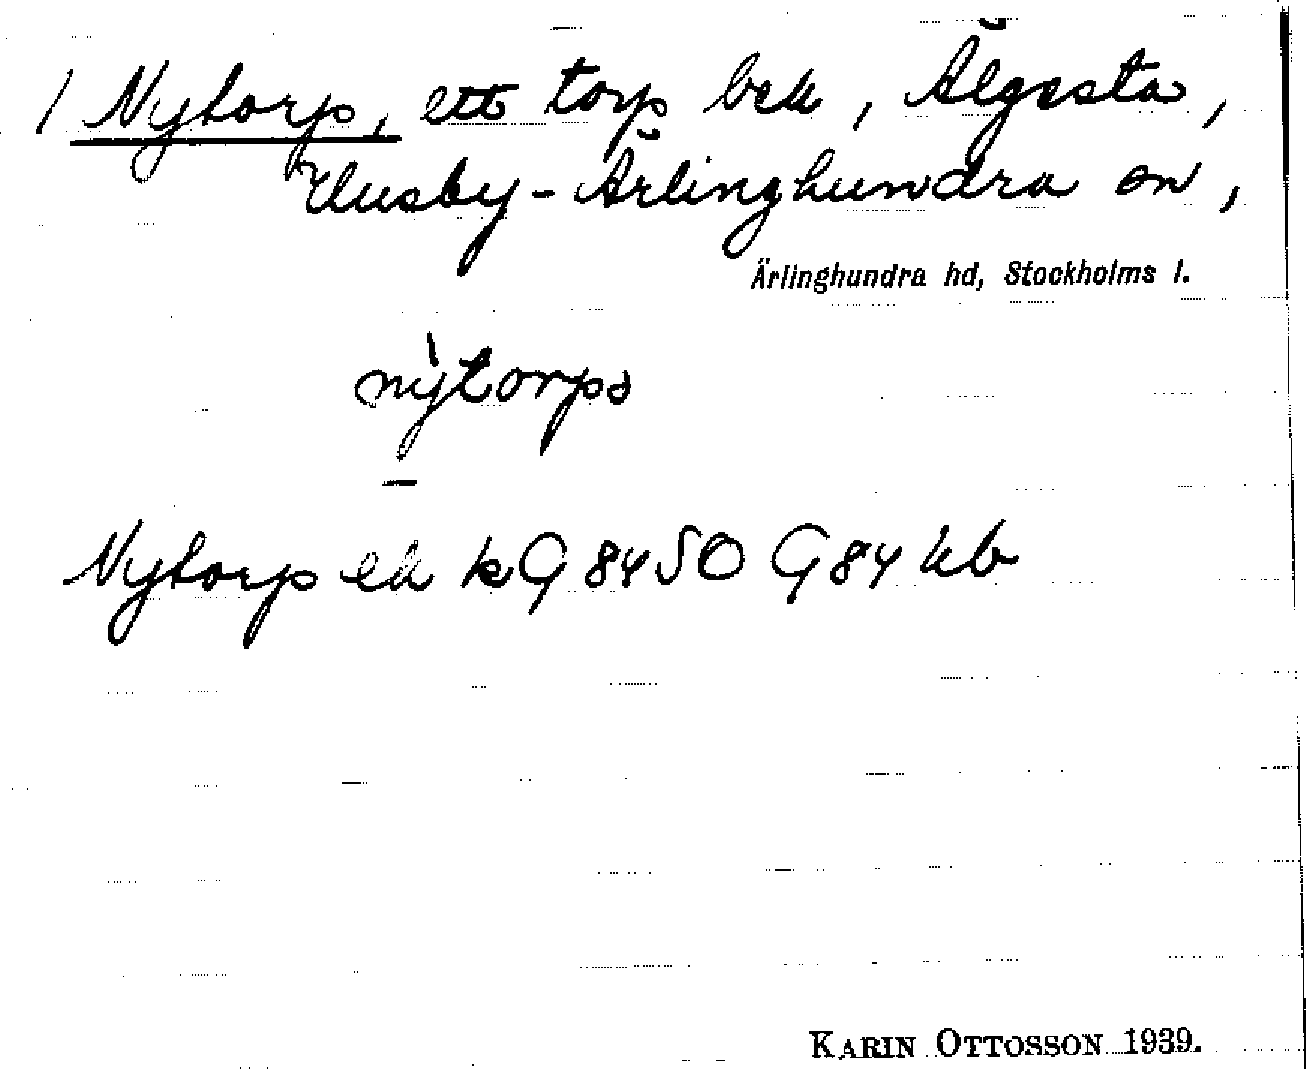 1 Nytorp, ett torp bek, Älgesta,
Husby-Ärlinghundra sn,
Ärlinghundra hd, Stockholms l.
nỳtorpə
Nytorp ek kG 84 SO G84 kb
KARIN OTTOSSON 1939.